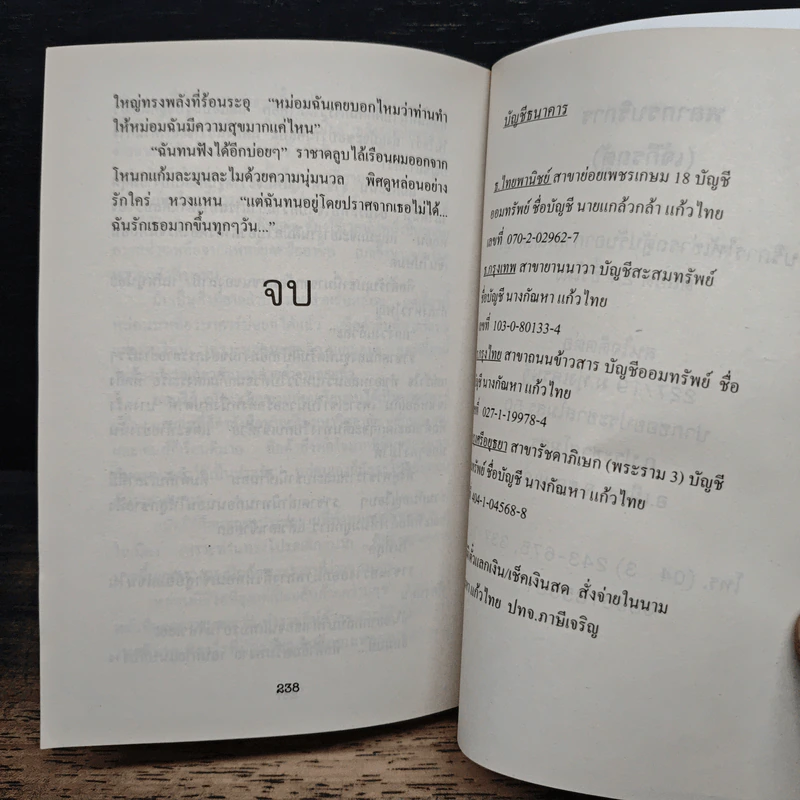 ใหญ่ทรงพลังที่ร้อนระอุ “หม่อมฉันเคยบอกไหมว่าท่านทำ
ให้หม่อมฉันมีความสุขมากแค่ไหน”
“ฉันทนฟังได้อีกบ่อยๆ” ราชาดลูบไล้เรือนผมออกจาก
โหนกแก้มละมุนละไมด้วยความนุ่มนวล พิศดูหล่อนอย่าง
รักใคร่ หวงแหน “แต่ฉันทนอยู่โดยปราศจากเธอไม่ได้...
ฉันรักเธอมากขึ้นทุกๆวัน...”
จบ
238
บัญชีธนาคาร
ธ.ไทยพานิชย์ สาขาย่อยเพชรเกษม 18 บัญชี
ออมทรัพย์ ชื่อบัญชี นายแกล้วกล้า แก้วไทย
เลขที่ 070-2-02962-7
ธ.กรุงเทพ สาขายานนาวา บัญชีสะสมทรัพย์
ชื่อบัญชี นางกัณหา แก้วไทย
เลขที่ 103-0-80133-4
กรุงไทย สาขาถนนข้าวสาร บัญชีออมทรัพย์ ชื่อ
บัญชี นางกัณหา แก้วไทย
ที่ 027-1-19978-4
ศรีอยุธยา สาขารัชดาภิเษก (พระราม 3) บัญชี
ทรัพย์ ชื่อบัญชี นางกัณหา แก้วไทย
404-1-04568-8
ตั๋วแลกเงิน/เช็คเงินสด สั่งจ่ายในนาม
แก้วไทย ปทจ.ภาษีเจริญ